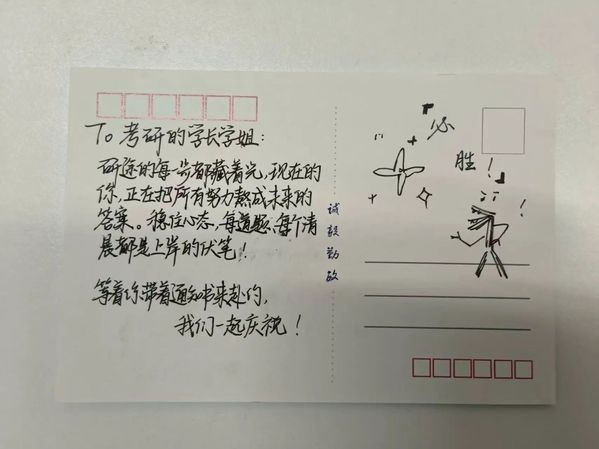 To 考研的学长学姐:
研途的每一步都藏着光,现在的
你,正在把所有努力熬成未来的
答案。稳住心态,每道题、每个清
晨都是上岸的伏笔!
等着你带着通知书来赴约,
我们一起庆祝!
诚毅勤敬
必
胜!
!